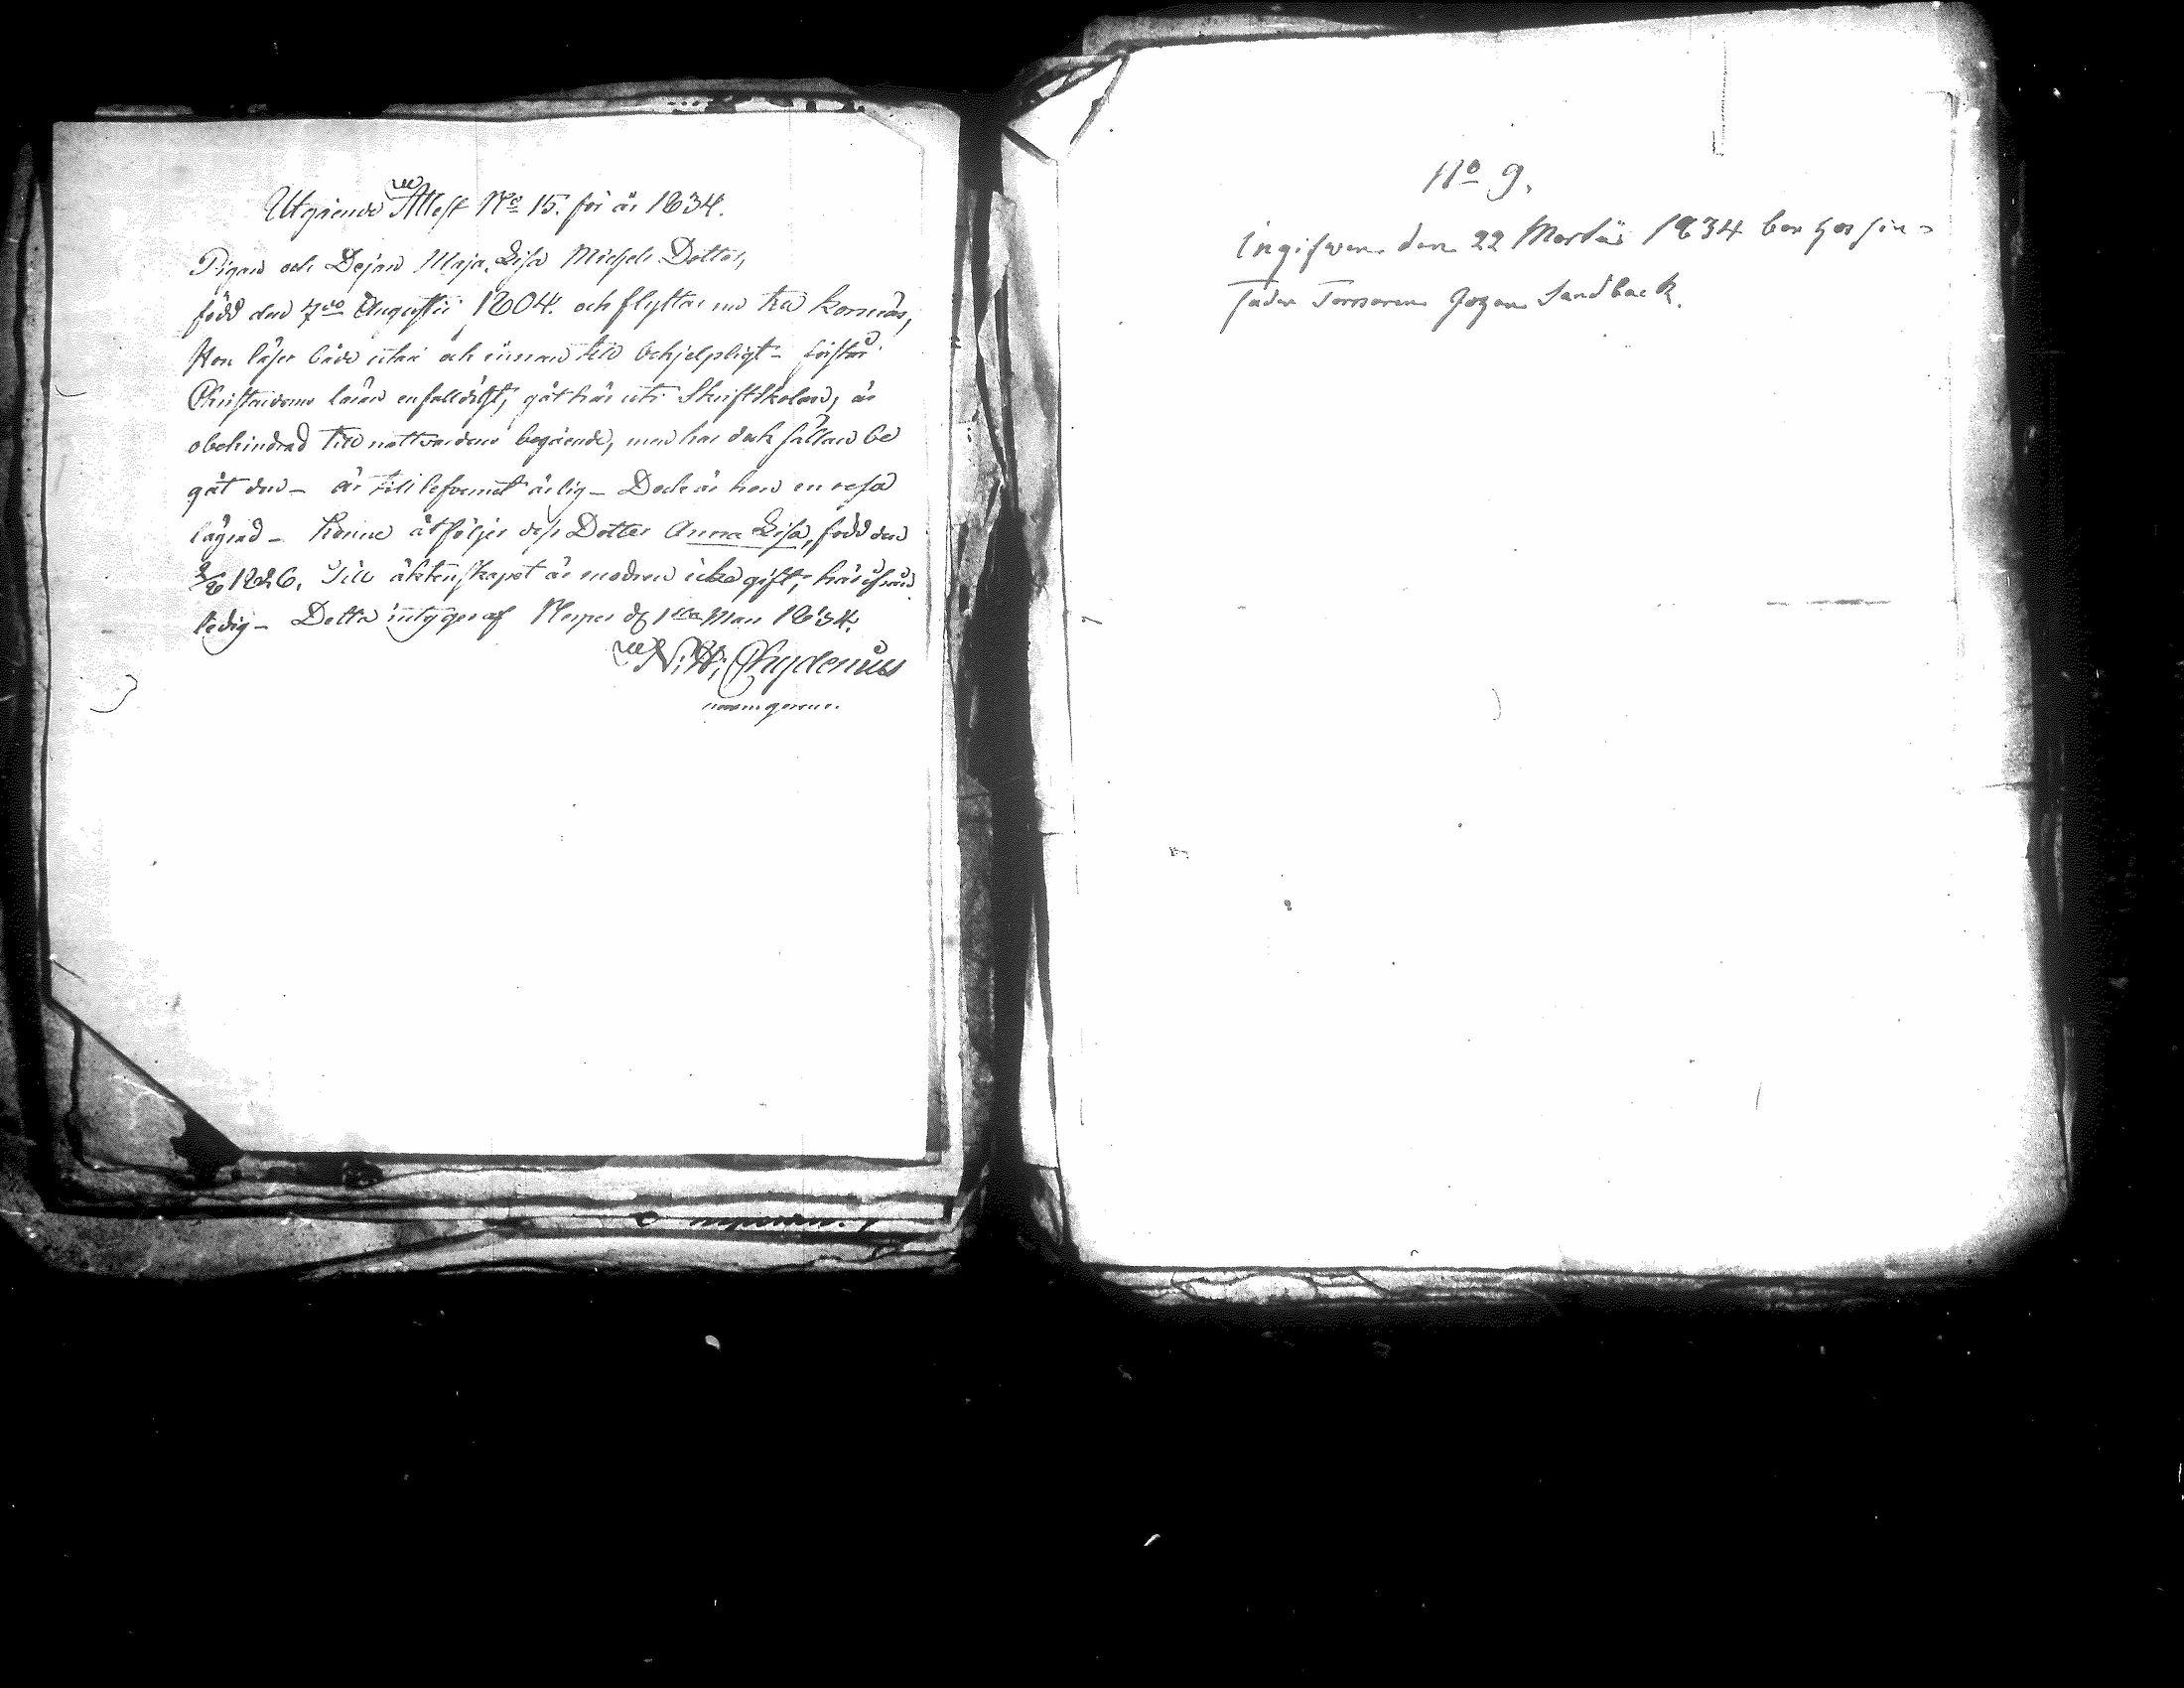 Utgående Attest No 15. för år 1834.
Pigan och Dejan Maja Lisa Michels Dotter,
född den 7de Augustii 1804. och flyttar nu till Korsnäs,
Hon läser både utan och innan till behjelpligt - förstår
Christendoms läran enfalldigt, gått här uti Skriftskolan, är
obehindrad till nattvardens begående, men har dock sällan be
gåt den - är till lefvernet ärlig - Dock är hon en resa
lägrad - Henne åtföljer dess Dotter Anna Lisa, född den
1826. Till äktenskapet är modren icke gift, härifrån
ledig - Detta intygar af Nerpes d 1sta Mars 1834.
N. H. Chydenius
No 9.
Ingifven den 22 Martii 1834 bor hos sin
fader Torparen Johan Sandback.